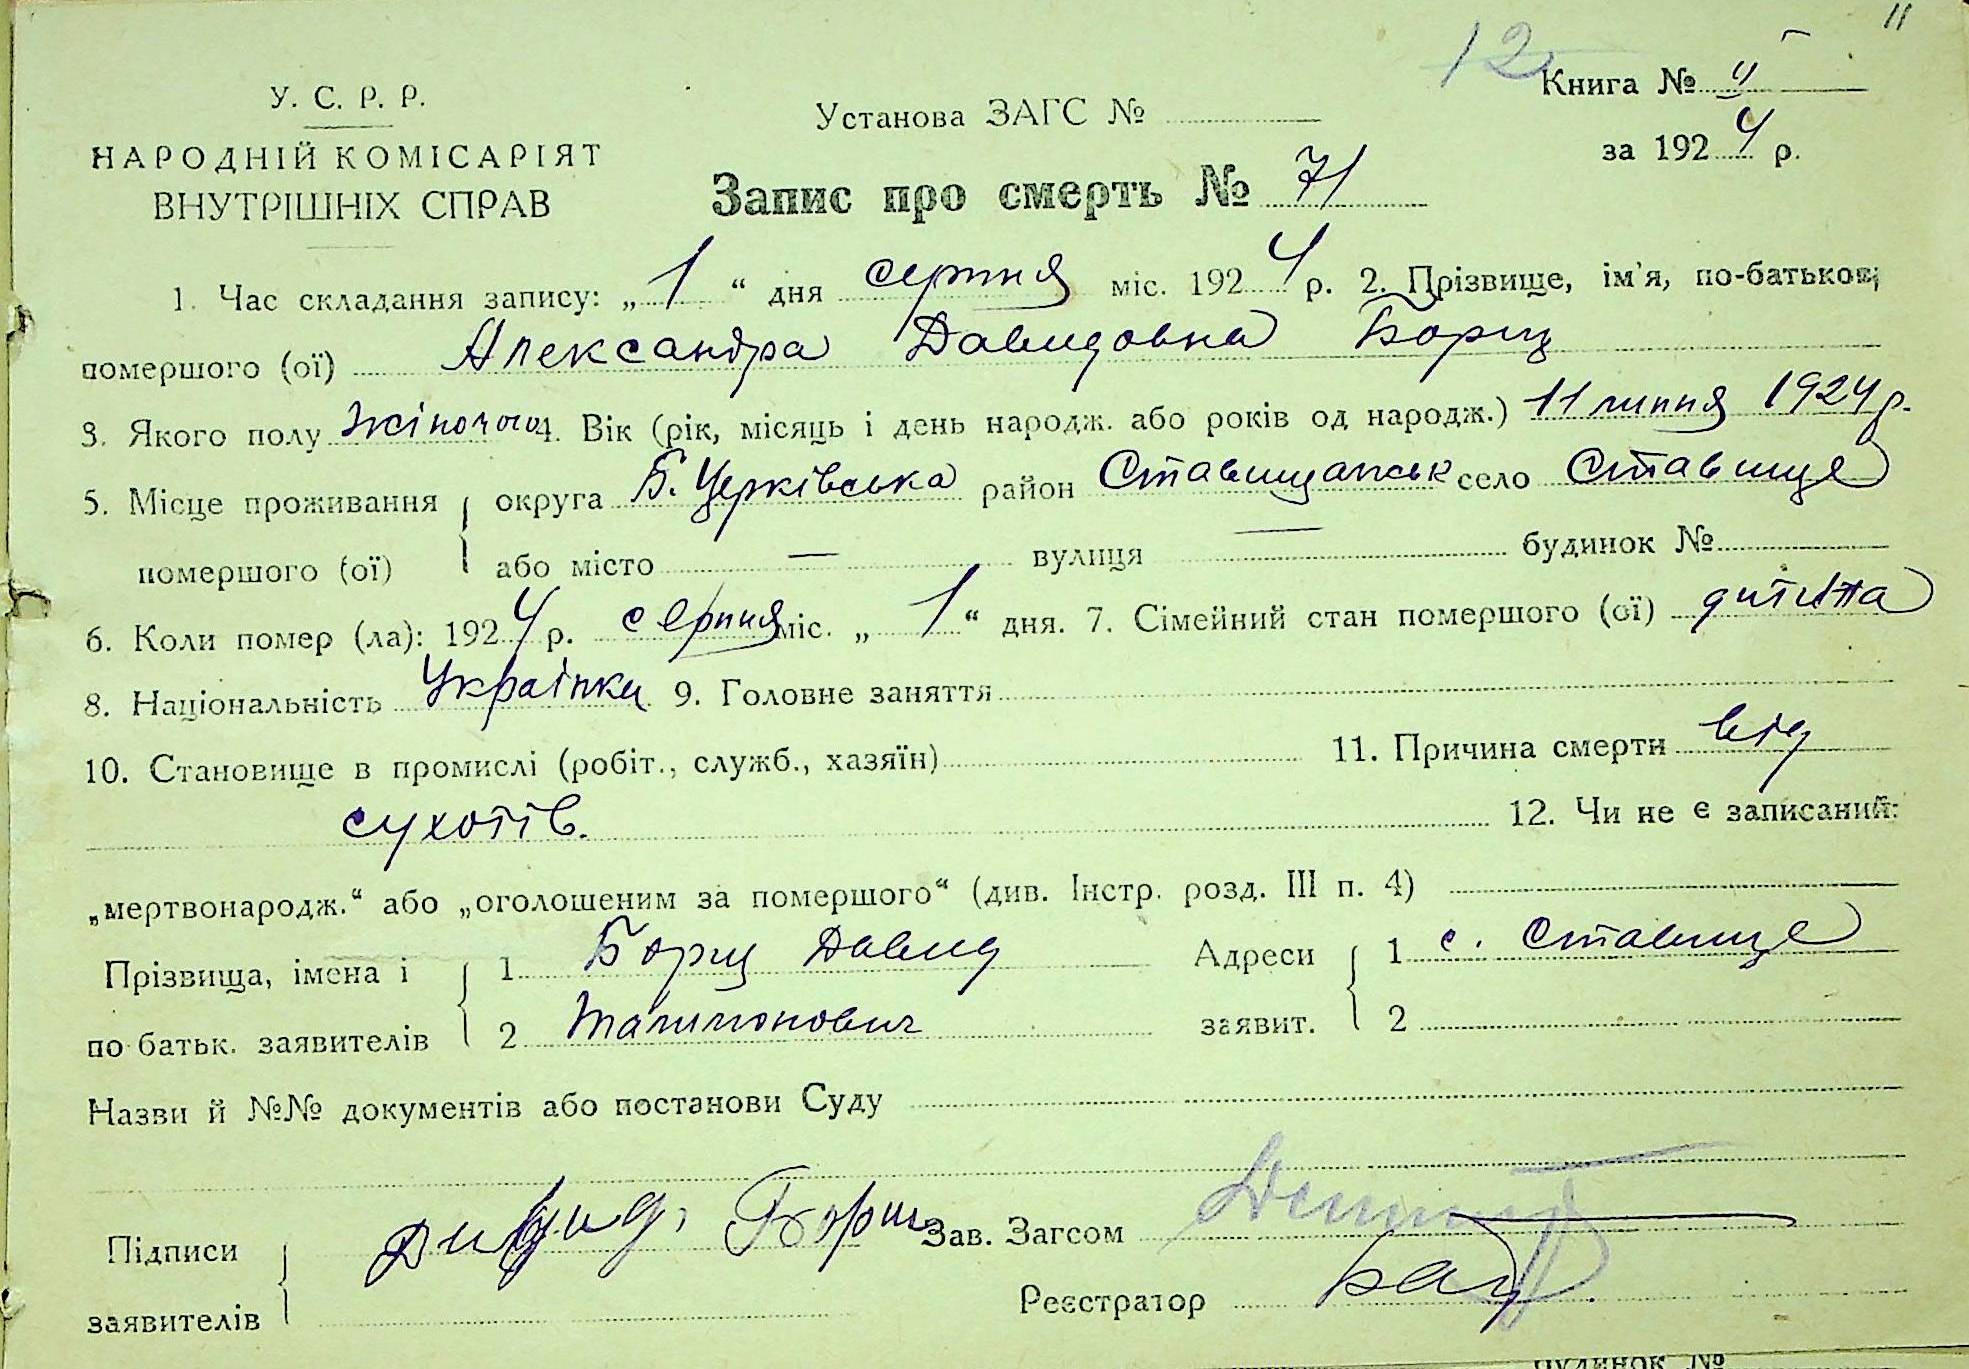 11
12
У. С. Р. Р.
Книга № II
НАРОДНІЙ КОМІСАРІЯТ
ВНУТРІШНІХ СПРАВ
Установа ЗАГС №
за 1924 р.
Запис про смерть № 71
1. Час складання запису: „1“ дня серпня міс. 1924 р. 2. Прізвище, ім'я, по-батькові
помершого (ої) Александра Давидовна Борщ
3. Якого полу жіночого 4. Вік (рік, місяць і день народж. або років од народж.) 11 липня 1924 р.
5. Місце проживання округа Б. Церківська район Ставищанськ село Ставище
помершого (ої) або місто — вулиця — будинок №
6. Коли помер (ла): 1924 р. серпня міс. „1“ дня. 7. Сімейний стан помершого (ої) дитина
8. Національність Українка 9. Головне заняття
10. Становище в промислі (робіт., служб., хазяїн) 11. Причина смерти від
сухотів. 12. Чи не є записаний:
„мертвонародж.“ або „оголошеним за помершого“ (див. Інстр. розд. III п. 4)
Прізвища, імена і 1 Борщ Давид Адреси 1 с. Ставище
по батьк. заявителів 2 Талимонович заявит. 2
Назви й №№ документів або постанови Суду
Підписи Борщ Зав. Загсом
заявителів Реєстратор
будинок №